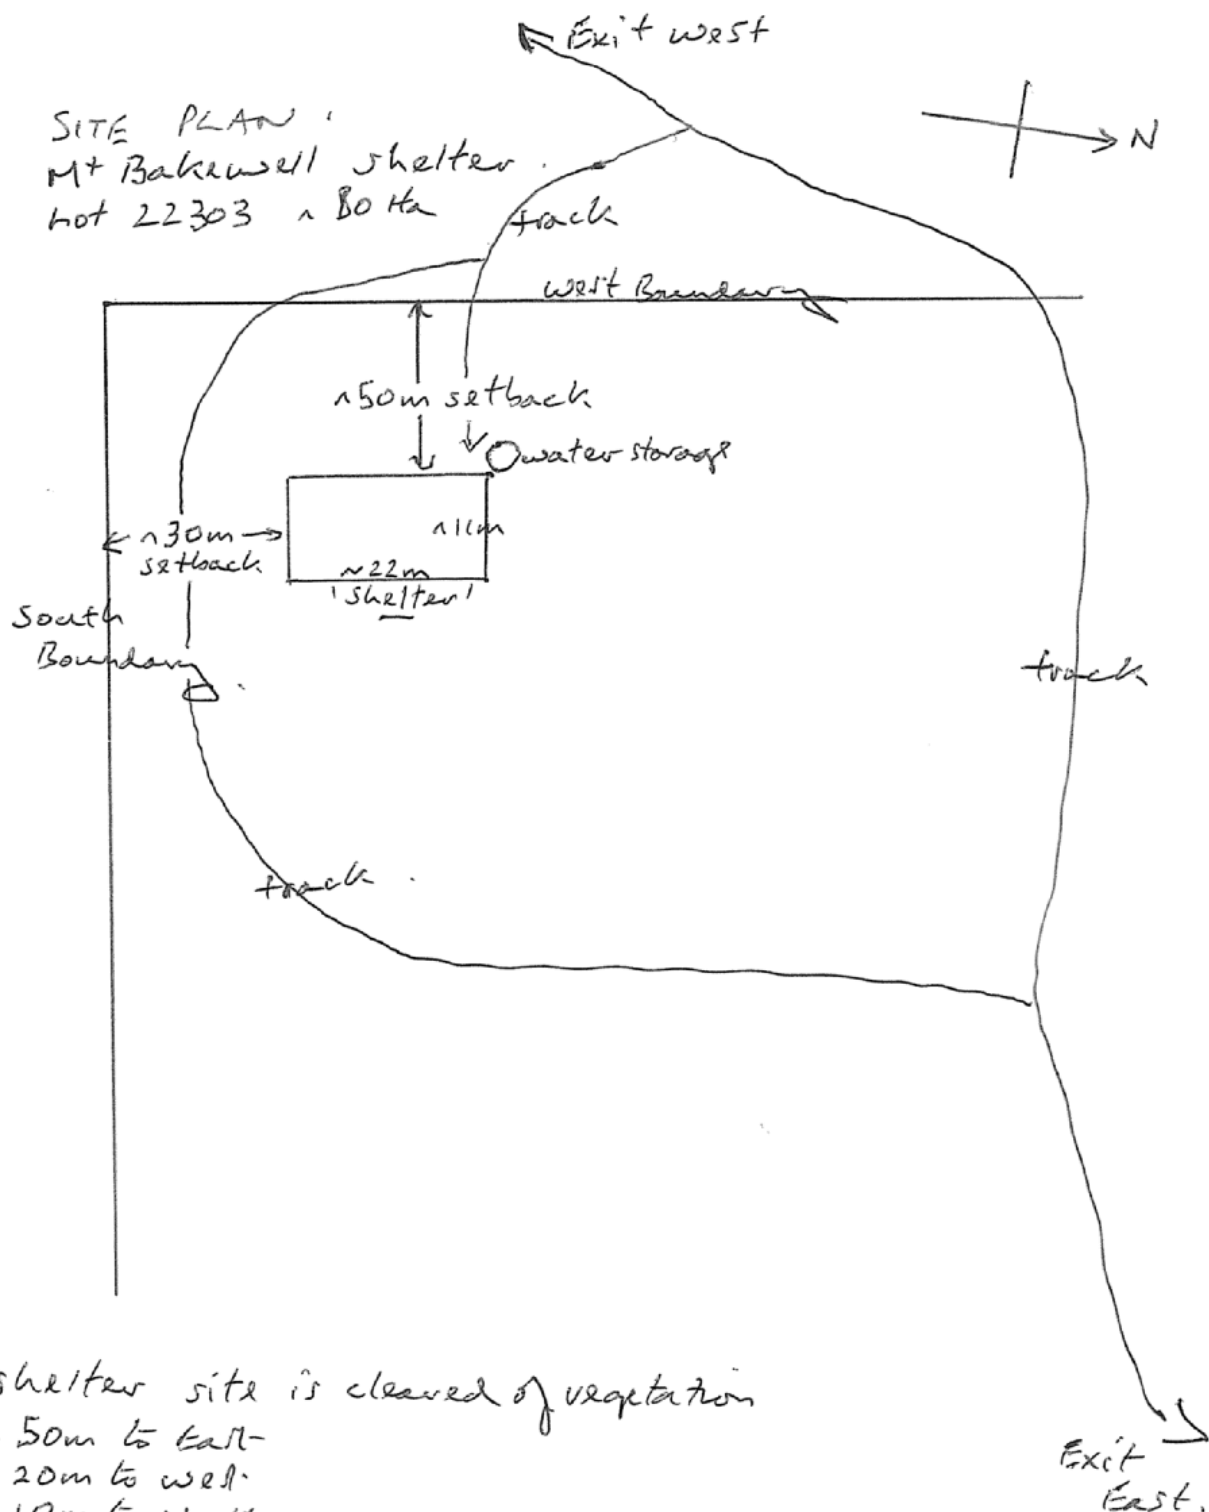 Exit west
SITE PLAN.
Mt Bakewell shelter.
Lot 22303 ~ 80 Ha
N
track
West Boundary
~50m setback
water storage
~30m
setback
~11m
~22m
'shelter'
South
Boundary
track
track
shelter site is cleared of vegetation
50m to East
20m to west
Exit
East.